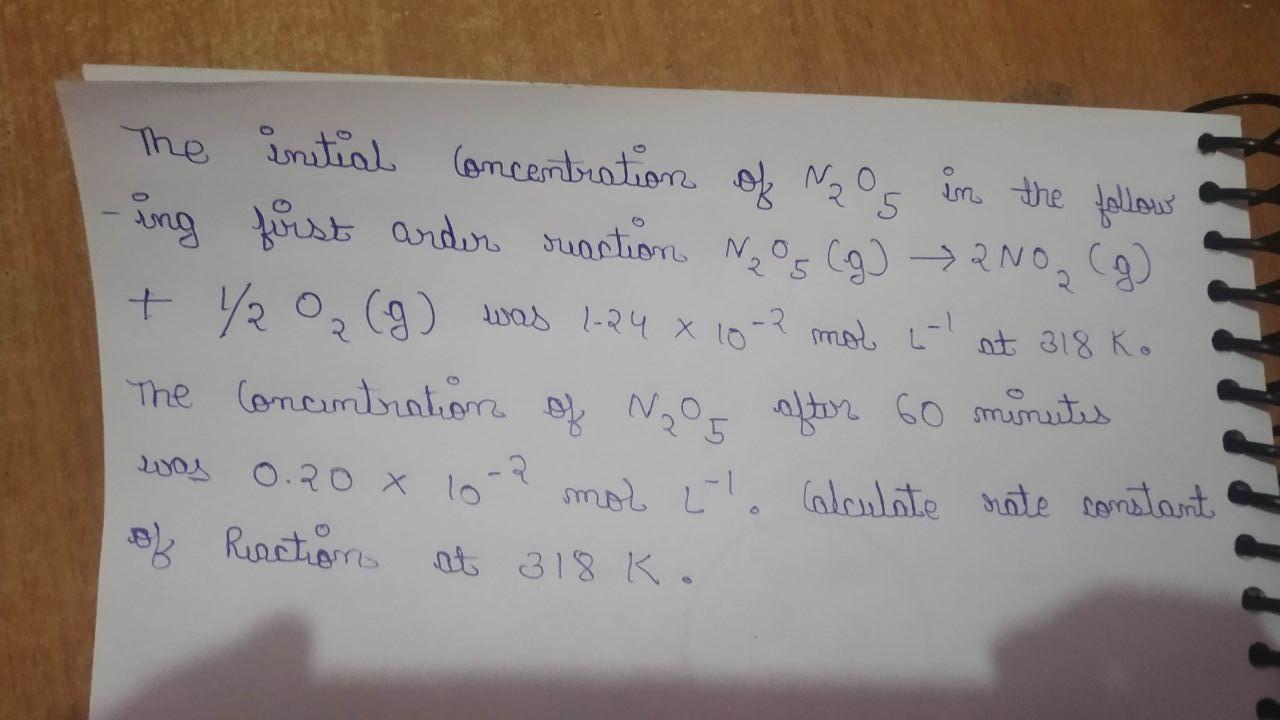 The initial Concentration of N₂O₅ in the follow
-ing first order reaction N₂O₅(g) → 2NO₂(g)
+ 1/2 O₂(g) was 1.24 × 10⁻² mol L⁻¹ at 318 K.
The Concentration of N₂O₅ after 60 minutes
was 0.20 × 10⁻² mol L⁻¹. Calculate rate constant
of Reaction at 318 K.